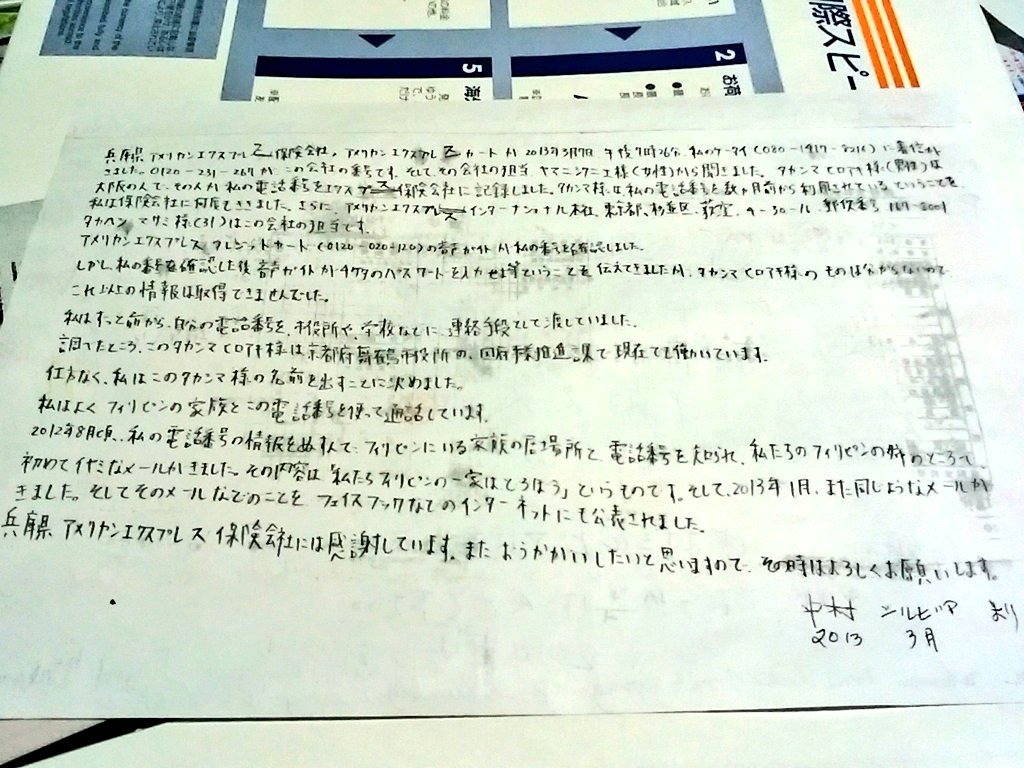 国際スピー
2
お荷
5
兵庫県 アメリカンエクスプレス 保険会社。アメリカンエクスプレス カードから 2013年3月7日 午後7時26分、私のケータイ(080-1917-8216)に着信が
きました。0120-231-267が、この会社の番号です。そして、その会社の担当、ヤマニシクニエ様(女性)から聞きました。タカシマヒロアキ様(男性)は
大阪の人で、その人が私の電話番号をエクスプレス保険会社に記録しました。タカシマ様は私の電話番号を数ヶ月前から利用されている ということを、
私は保険会社に何度もききました。さらに、アメリカンエクスプレス インターナショナル本社、東京都、杉並区、荻窪、4-30-16、郵便番号 167-8001
タカハシ マサミ様(31)はこの会社の担当です。
アメリカンエクスプレス クレジットカード(0120-020-120)の音声ガイドが私の番号を確認しました。
しかし、私の番号を確認した後、音声ガイドが4ケタのパスワードを入力せよ等ということを伝えてきましたが、タカシマヒロアキ様のものは分からないので
これ以上の情報は取得できませんでした。
私はずっと前から、自分の電話番号を、市役所や、学校などに、連絡手段として渡していました。
調べたところ、このタカシマヒロアキ様は京都府舞鶴市役所の、国府事業推進課で現在でも働いています。
仕方なく、私はこのタカシマ様の名前を出すことに決めました。
私はよく フィリピンの家族とこの電話番号を使って通話しています。
2012年8月頃、私の電話番号の情報をぬすんで、フィリピンにいる家族の居場所と、電話番号を知られ、私たちのフィリピンの のところへ、
初めてイヤミなメールがきました。その内容は「私たちフィリピンの一家はどろぼう」というものです。そして、2013年1月、また同じようなメールが
きました。そしてそのメールなどのことを、フェイスブックなどのインターネットにも公表されました。
兵庫県 アメリカンエクスプレス 保険会社には感謝しています。また おうかがいしたいと思いますので、その時はよろしくお願いします。
中村 シルビア より
2013 3月